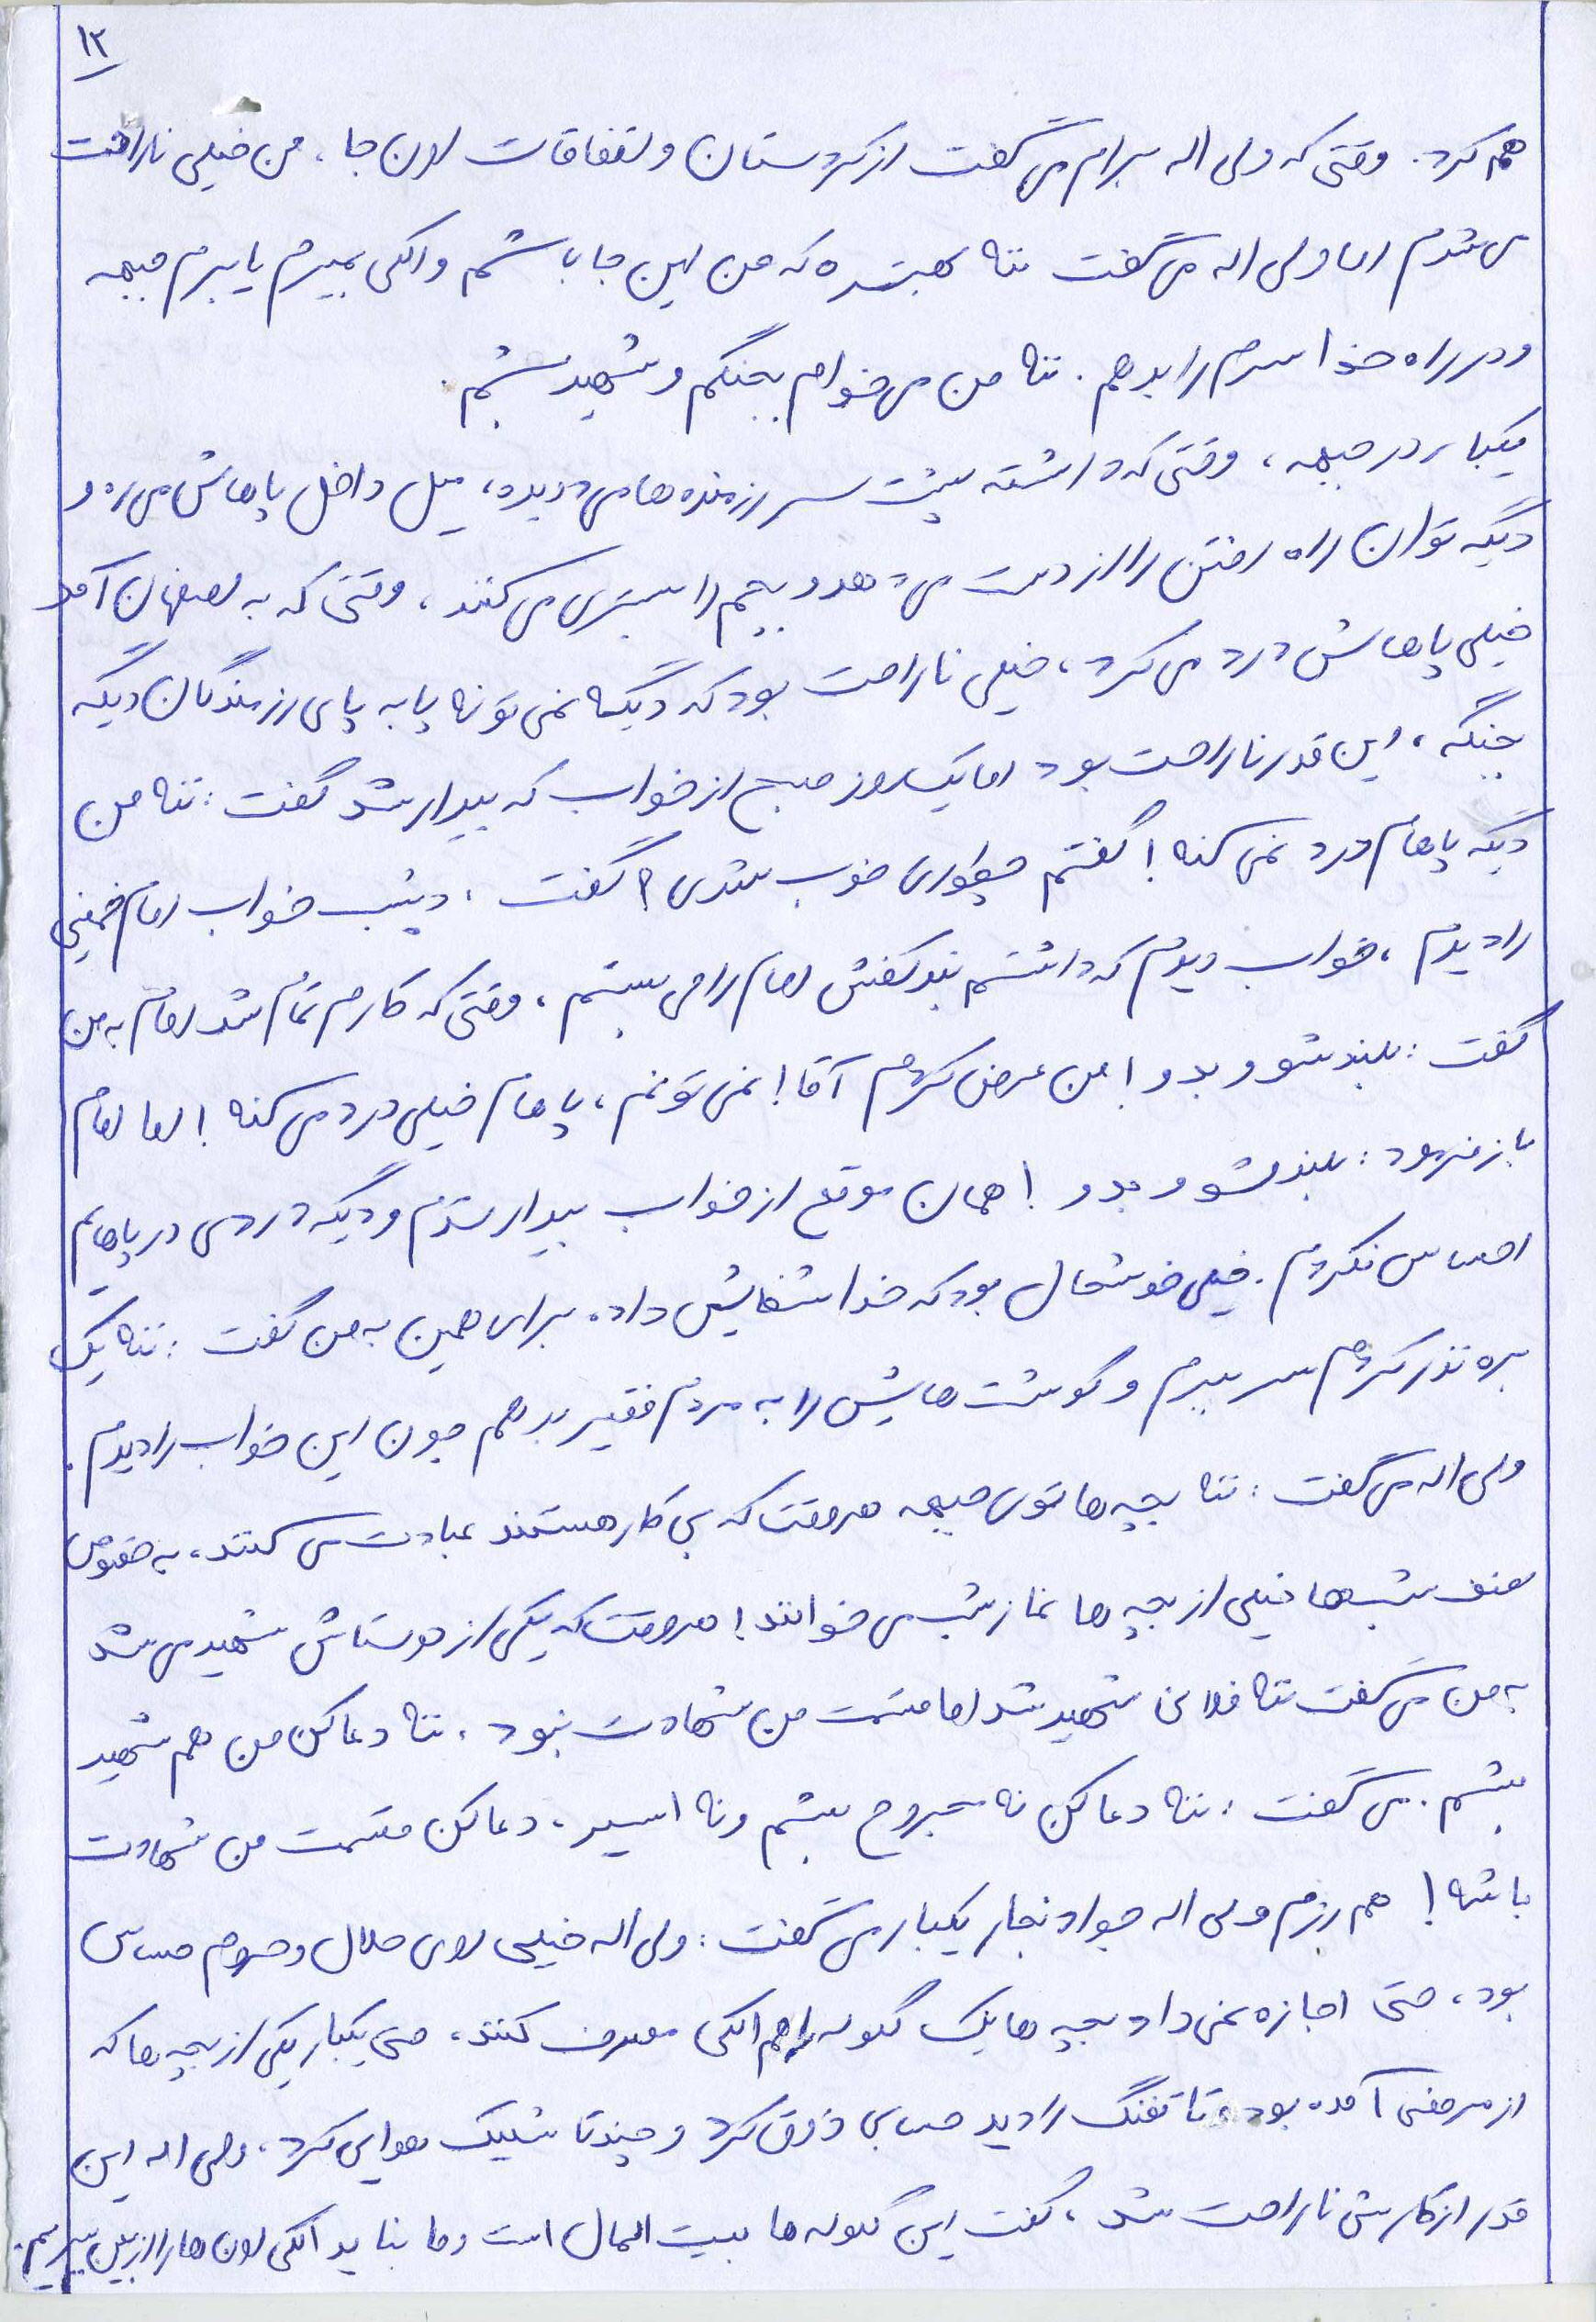 ۱۲
هم کرد. وقتی که ولی اله برام می گفت از کردستان و اتفاقات اون جا، من خیلی ناراحت
می شدم اما ولی اله می گفت ننه بهتره که من این جا باشم و الکی بمیرم یا برم جبهه
و در راه خدا سرم را بدهم. ننه من می خوام بجنگم و شهید بشم.
یکبار در جبهه، وقتی که داشته پشت سر رزمنده ها می دویده، میل داخل پاهاش می ره و
دیگه توان راه رفتن را از دست می دهد و بچم را بستری می کنند، وقتی که به اصفهان آمد
خیلی پاهاش درد می کرد، خیلی ناراحت بود که دیگه نمی تونه پا به پای رزمندگان دیگه
بجنگه، این قدر ناراحت بود اما یک روز صبح از خواب که بیدار شد گفت: ننه من
دیگه پاهام درد نمی کنه! گفتم چطوری خوب شدی؟ گفت، دیشب خواب امام خمینی
را دیدم، خواب دیدم که داشتم بند کفش امام را می بستم، وقتی که کارم تمام شد امام به من
گفت: بلند شو و بدو! من عرض کردم آقا! نمی تونم، پاهام خیلی درد می کنه! اما امام
باز فرمود: بلند شو و بدو! همان موقع از خواب بیدار شدم و دیگه دردی در پاهایم
احساس نکردم. خیلی خوشحال بود که خدا شفایش داد. برای همین به من گفت: ننه یک
بره نذر کردم سر ببرم و گوشت هایش را به مردم فقیر بدهم چون این خواب را دیدم.
ولی اله می گفت: ننه بچه ها توی جبهه هر وقت که بی کار هستند عبادت می کنند، به خصوص
نصف شب ها خیلی از بچه ها نماز شب می خوانند! هر وقت که یکی از دوستاش شهید می شد
به من می گفت ننه فلانی شهید شد اما قسمت من شهادت نبود. ننه دعا کن من هم شهید
بشم. می گفت: ننه دعا کن نه مجروح بشم و نه اسیر، دعا کن قسمت من شهادت
باشه! هم رزم ولی اله جواد نجار یکبار می گفت: ولی اله خیلی روی حلال و حرام حساس
بود، حتی اجازه نمی داد بچه ها یک گلوله را هم الکی مصرف کنند، حتی یکبار یکی از بچه ها که
از مرخصی آمده بود تا تفنگ را دید حسابی ذوق کرد و چندتا شلیک هوایی کرد، ولی اله این
قدر از کارش ناراحت شد، گفت این گلوله ها بیت المال است و ما نباید الکی اون ها را از بین ببریم.